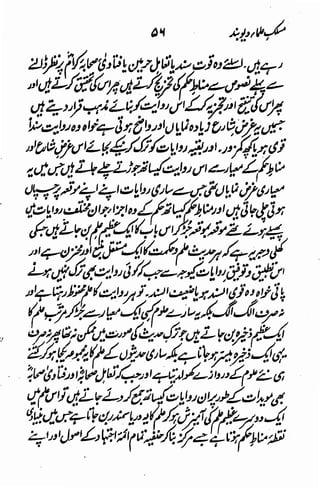 مسلک علماء دیوبند ۵۶
رہے ہیں۔ اسلئے وہ قوت سند یا تعامل حرمین یا فتاویٰ صحابہ کرامؓ پر نظر ڈالنے
سے پہلے نصوص سے مناط حکم کی تخریج کرتے ہیں پھر اس کی تحقیق کرتے ہیں اور
پھر اس کی تنقیح اور تجزیہ کر کے اس روایت کو بنائے مذہب قرار دیتے ہیں
جسمیں یہ غرض شارع زیادہ نمایاں اور واضح ہوتی ہے خواہ وہ روایت سنداً
قوی ہو یا کچھ کمزور۔ اور بقیہ روایات کو ترک کرنیکے بجائے اس غرض شارع اور
مناط حکم کے معیار سے اس روایت کیساتھ جوڑتے چلے جاتے ہیں جس میں یہ
معیاری غرض نمایاں تھی جس سے ساری روایات اپنے اپنے موقعہ پر چسپاں
ہوتی چلی جاتی ہیں اور مناط حکم کیساتھ حکم کے وہ اجزاء جو ان مختلف روایات میں
پھیلے ہوئے تھے موقعہ بموقعہ جڑ کر اس باب کا ایک عظیم علم بن جاتے ہیں جسکی
کھلی وجہ یہ ہے کہ ہر حدیث علم و حکمت کا ایک مستقل منبع اور مخزن ہے اور
اس تطبیق و توفیق روایات کیوجہ سے جب کوئی روایت بھی ترک نہیں ہونے
پاتی خواہ وہ قوی السند ہو یا ضعیف السند۔ تو ہر روایت کا علم محفوظ رہتا ہے اور
نہ صرف الگ الگ بلکہ یہ سارے علوم کسی ایک معیار سے جڑ کر مرتب علم کا
ایک عظیم ذخیرہ بن جاتے ہیں جو ترک حدیث کی صورت میں ممکن نہ تھا پھر نہ صرف
یہی ایک ذخیرہ میسر ہو جاتا ہے بلکہ ساری حدیثوں کے علم کا یہ مجموعہ یکجا ہو کر کتنے
ہی نئے علوم کے دروازے کھولدیتا ہے اور جب کہ تعامل صحابہؓ اور فتاویٰ صحابہؓ
بھی مویدات کے طور پر ان روایات کیساتھ جمع کر دئے جاتے ہیں تو اس علم میں
ایک دوسرے عظیم علم کی آمیزش ہو کر علم کا یہ دریا سمندر بن جاتا ہے جس میں بنیادی
نقطہ مناط حکم ہوتا ہے جسے مرکز بنا کر حنفیہ تمام ائمہ اجتہاد کے اصول اور اپنے